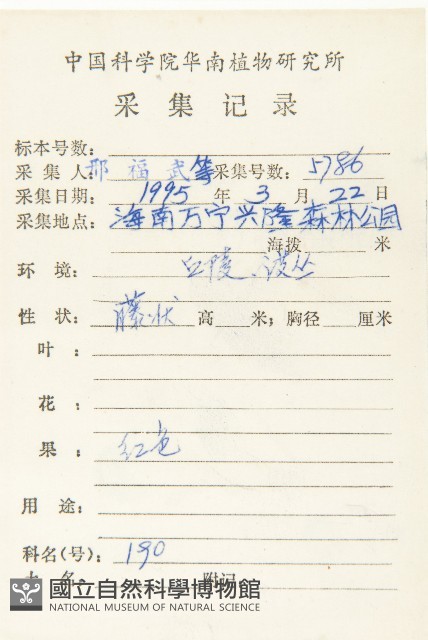 中国科学院华南植物研究所
采集记录
标本号数：
采集人：邢福武等采集号数：5786
采集日期：1995年3月22日
采集地点：海南万宁兴隆森林公园
海拨 米
环境：丘陵、灌丛
性状：藤状 高 米；胸径 厘米
叶：
花：
果：红色
用途：
科名(号)：190
附记
國立自然科學博物館
NATIONAL MUSEUM OF NATURAL SCIENCE